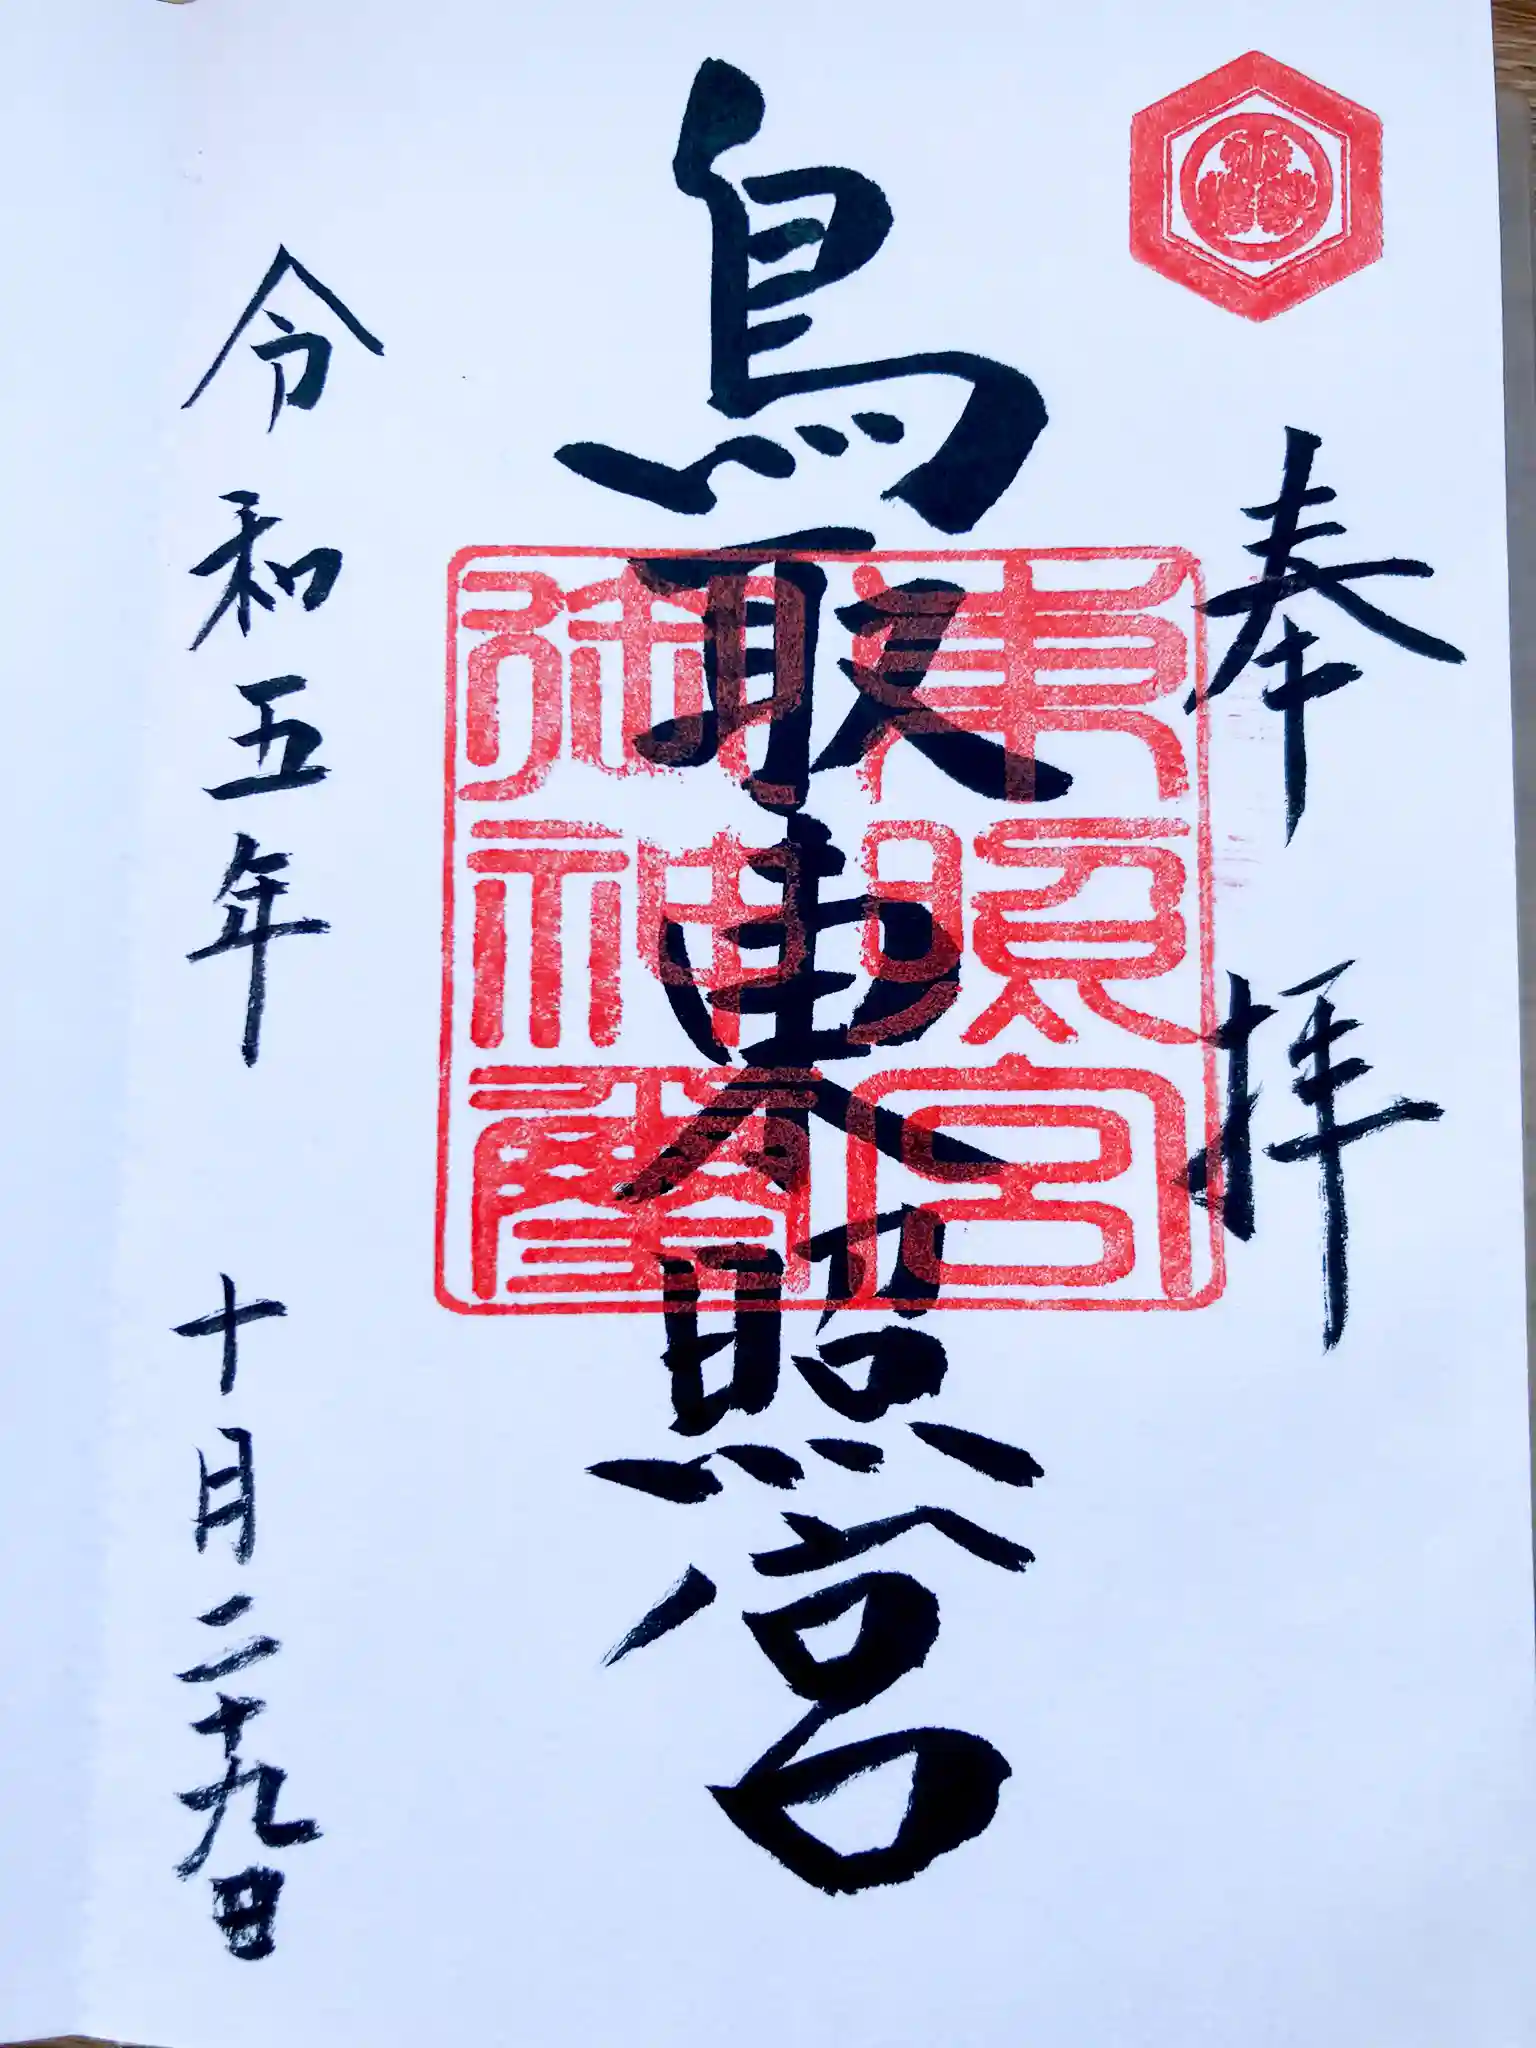 奉拝
鳥取東照宮
東照宮
御神璽
令和五年 十月二十九日